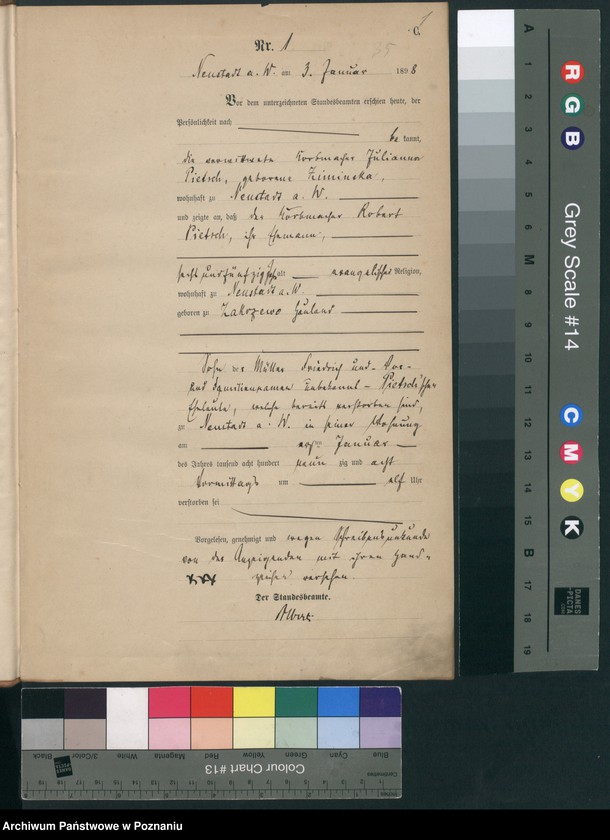 C.
Nr. 1
Neustadt a. W. am 3. Januar 1898
Vor dem unterzeichneten Standesbeamten erschien heute, der
Persönlichkeit nach
be kannt,
die verwittwete Korbmacher Julianna
Pietsch, geborene Ziminska,
wohnhaft zu Neustadt a. W.
und zeigte an, daß der Korbmacher Robert
Pietsch, ihr Ehemann,
sechsundfünfzig Jahr alt evangelischer Religion,
wohnhaft zu Neustadt a. W.
geboren zu Zakrzewo Hauland
Sohn der Müller Friedrich und - Vor-
und Familiennamen unbekannt - Pietsch'schen
Eheleute, welche bereits verstorben sind,
zu Neustadt a. W. in seiner Wohnung
am ersten Januar
des Jahres tausend acht hundert neun zig und acht
Vormittags um elf Uhr
verstorben sei
Vorgelesen, genehmigt und wegen Schreibensunkunde
von der Anzeigenden mit ihrem Hand-
xxx zeichen versehen.
Der Standesbeamte.
Albert
A 1 2 3 4 5 6 M 8 9 10 11 12 13 14 15 B 17 18 19
R G B
Grey Scale #14
C M Y K
DANES
PICTA
Black 3/Color White Magenta Red Yellow Green Cyan Blue
Colour Chart #13
DANES
PICTA
Centimetres
Inches
Archiwum Państwowe w Poznaniu